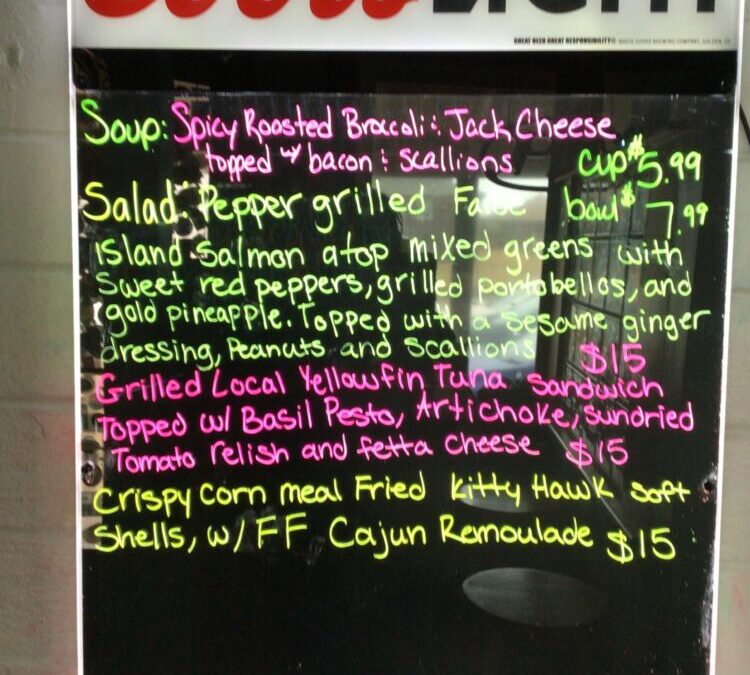 Coors LIGHT
GREAT BEER GREAT RESPONSIBILITY® ©2012 COORS BREWING COMPANY, GOLDEN, CO
Soup: Spicy Roosted Brocoli & Jack Cheese
topped w/ bacon & scallions cup $5.99
Salad: Pepper grilled Faroe bowl $7.99
Island Salmon atop mixed greens with
Sweet red peppers, grilled portobellos, and
gold pineapple. Topped with a sesame ginger
dressing, Peanuts and scallions $15
Grilled Local Yellowfin Tuna sandwich
Topped w/ Basil Pesto, Artichoke, sundried
Tomato relish and fetta cheese $15
Crispy Corn meal Fried Kitty Hawk soft
Shells, w/ FF Cajun Remoulade $15